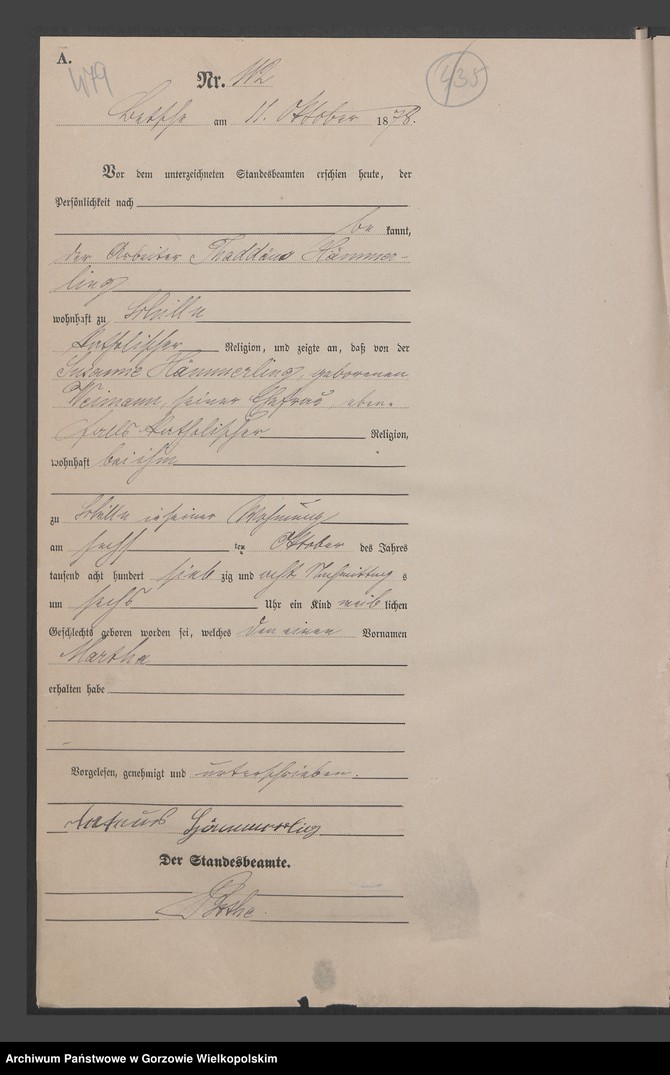 A.
479
435
Nr. 112
Betsche am 11. Oktober 1878.
Vor dem unterzeichneten Standesbeamten erschien heute, der
Persönlichkeit nach
be kannt,
der Arbeiter Thaddäus Hämmer-
ling
wohnhaft zu
katholischer Religion, und zeigte an, daß von der
Susanne Hämmerling, geborenen
Weimann, seiner Ehefrau, eben-
falls katholischer Religion,
wohnhaft bei ihm
zu in seiner Wohnung
am sechs ten Oktober des Jahres
tausend acht hundert sieb zig und acht Nachmittag s
um sechs Uhr ein Kind weib lichen
Geschlechts geboren worden sei, welches den einen Vornamen
Martha
erhalten habe
Vorgelesen, genehmigt und unterschrieben.
Hämmerling
Der Standesbeamte.
Archiwum Państwowe w Gorzowie Wielkopolskim